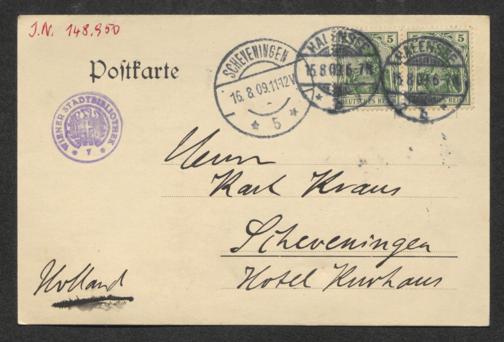 J.N. 148.950
Postkarte
WIENER STADTBIBLIOTHEK
SCHEVENINGEN
16.8.09.11-12V
5
HALENSEE
15.8.09.6-7N
HALENSEE
15.8.09.6-7N
b
5
5
DEUTSCHES REICH
Herrn
Karl Kraus
Scheveningen
Hotel Kurhaus
Holland